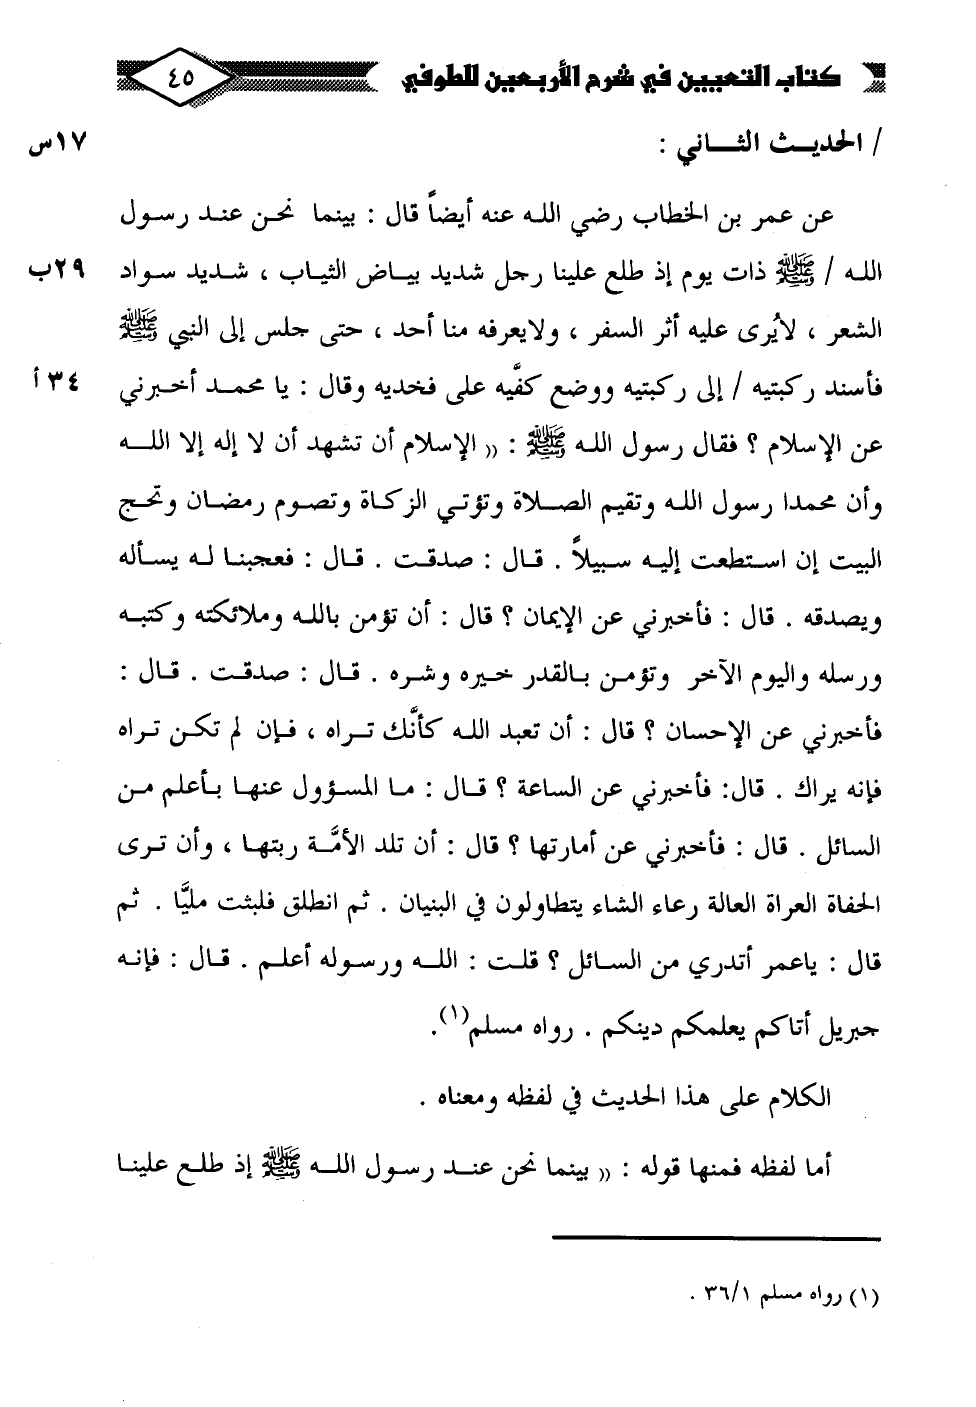 كتاب التعيين في شرح الأربعين للطوفي ٤٥
/ الحديث الثاني : ١٧س
عن عمر بن الخطاب رضي الله عنه أيضاً قال : بينما نحن عند رسول
الله / ﷺ ذات يوم إذ طلع علينا رجل شديد بياض الثياب ، شديد سواد ٢٩ب
الشعر ، لايُرى عليه أثر السفر ، ولايعرفه منا أحد ، حتى جلس إلى النبي ﷺ
فأسند ركبتيه / إلى ركبتيه ووضع كفَّيه على فخديه وقال : يا محمد أخبرني ٣٤أ
عن الإسلام ؟ فقال رسول الله ﷺ : (( الإسلام أن تشهد أن لا إله إلا الله
وأن محمدا رسول الله وتقيم الصلاة وتؤتي الزكاة وتصوم رمضان وتحج
البيت إن استطعت إليه سبيلاً . قال : صدقت . قال : فعجبنا له يسأله
ويصدقه . قال : فأخبرني عن الإيمان ؟ قال : أن تؤمن بالله وملائكته وكتبه
ورسله واليوم الآخر وتؤمن بالقدر خيره وشره . قال : صدقت . قال :
فأخبرني عن الإحسان ؟ قال : أن تعبد الله كأنَّك تراه ، فإن لم تكن تراه
فإنه يراك . قال: فأخبرني عن الساعة ؟ قال : ما المسؤول عنها بأعلم من
السائل . قال : فأخبرني عن أمارتها ؟ قال : أن تلد الأمَّة ربتها ، وأن ترى
الحفاة العراة العالة رعاء الشاء يتطاولون في البنيان . ثم انطلق فلبثت مليَّا . ثم
قال : ياعمر أتدري من السائل ؟ قلت : الله ورسوله أعلم . قال : فإنه
جبريل أتاكم يعلمكم دينكم . رواه مسلم(١).
الكلام على هذا الحديث في لفظه ومعناه .
أما لفظه فمنها قوله : (( بينما نحن عند رسول الله ﷺ إذ طلع علينا
(١) رواه مسلم ٣٦/١ .